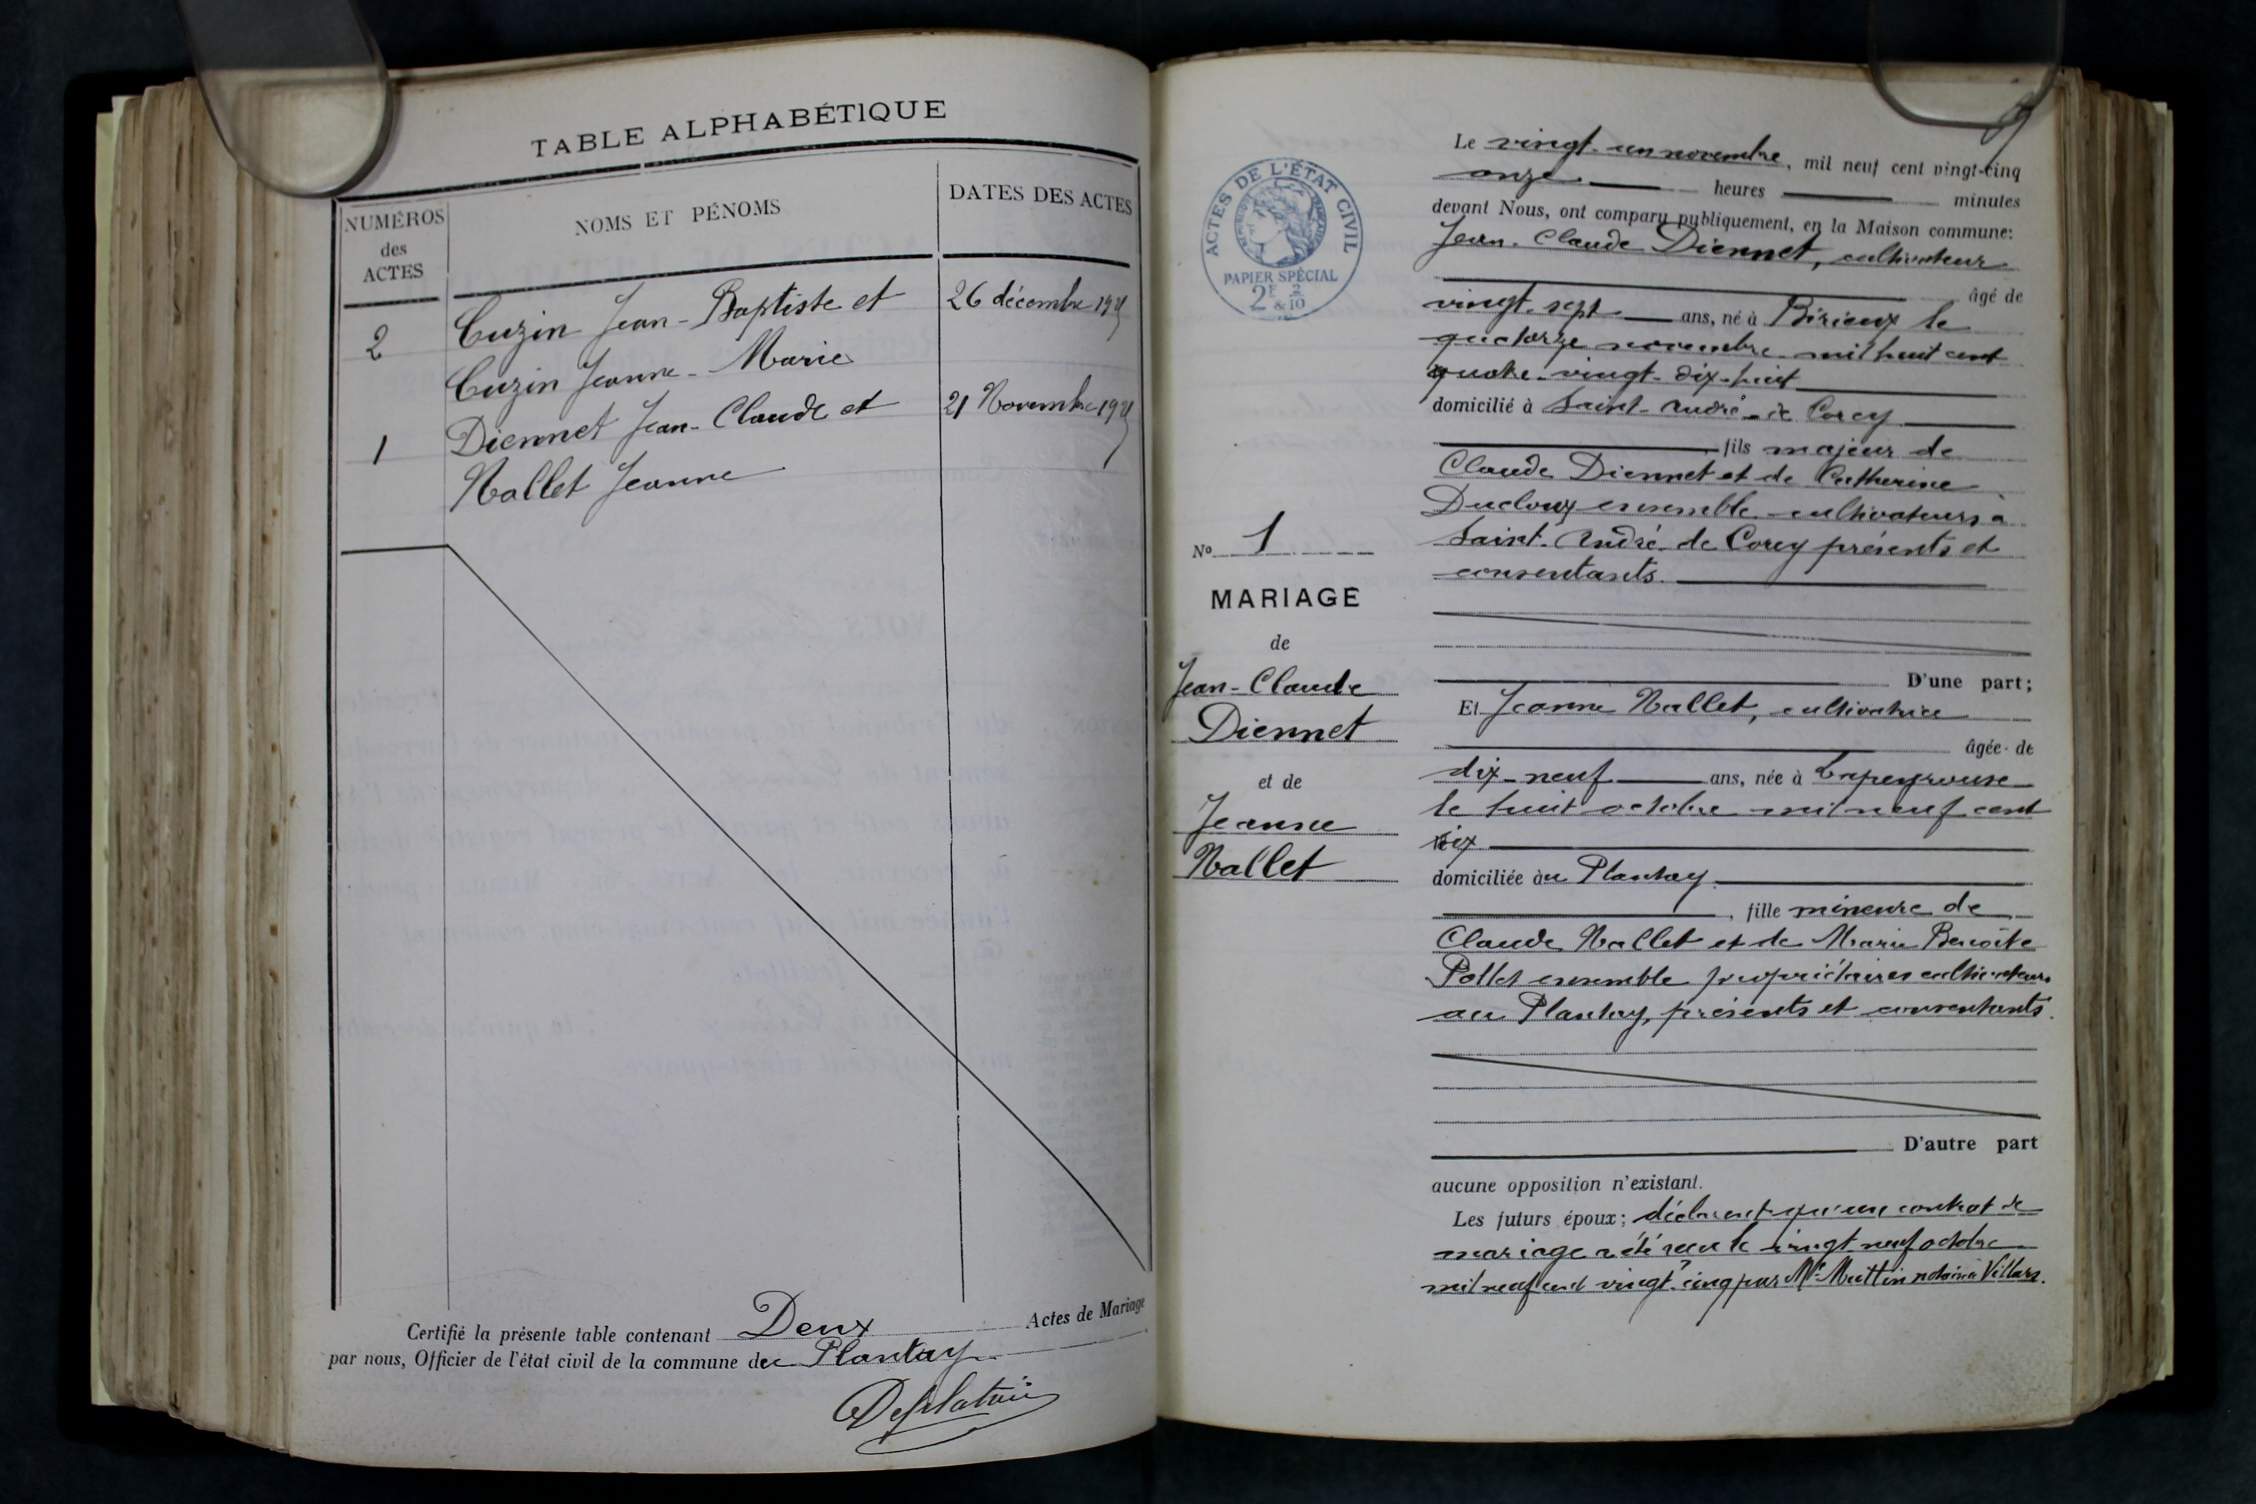 TABLE ALPHABÉTIQUE
NUMÉROS
des
ACTES
NOMS ET PÉNOMS
DATES DES ACTES
2
Cuzin Jean-Baptiste et
26 décembre 1925
Cuzin Jeanne-Marie
1
Diennet Jean-Claude et
21 Novembre 1925
Nallet Jeanne
Certifié la présente table contenant Deux Actes de Mariage
par nous, Officier de l'état civil de la commune du Plantay
ACTES DE L'ÉTAT CIVIL
PAPIER SPÉCIAL
2F 2
& 10
No 1
MARIAGE
de
Jean-Claude
Diennet
et de
Jeanne
Nallet
Le vingt-un novembre, mil neuf cent vingt-cinq
onze heures minutes
devant Nous, ont comparu publiquement, en la Maison commune:
Jean-Claude Diennet, cultivateur
âgé de
vingt-sept ans, né à Birieux le
quatorze novembre mil huit cent
quatre-vingt-dix-huit
domicilié à Saint-André-de Corcy
fils majeur de
Claude Diennet et de Catherine
Ducloux ensemble cultivateurs à
Saint-André-de Corcy présents et
consentants.
D'une part;
Et Jeanne Nallet, cultivatrice
âgée de
dix-neuf ans, née à Lapeyrouse
le huit octobre mil neuf cent
six
domiciliée au Plantay
, fille mineure de
Claude Nallet et de Marie Benoîte
Pollet ensemble propriétaires cultivateurs
au Plantay, présents et consentants.
D'autre part
aucune opposition n'existant.
Les futurs époux; déclarent qu'un contrat de
mariage a été reçu le vingt neuf octobre
mil neuf cent vingt-cinq par Me Muttin notaire à Villars.